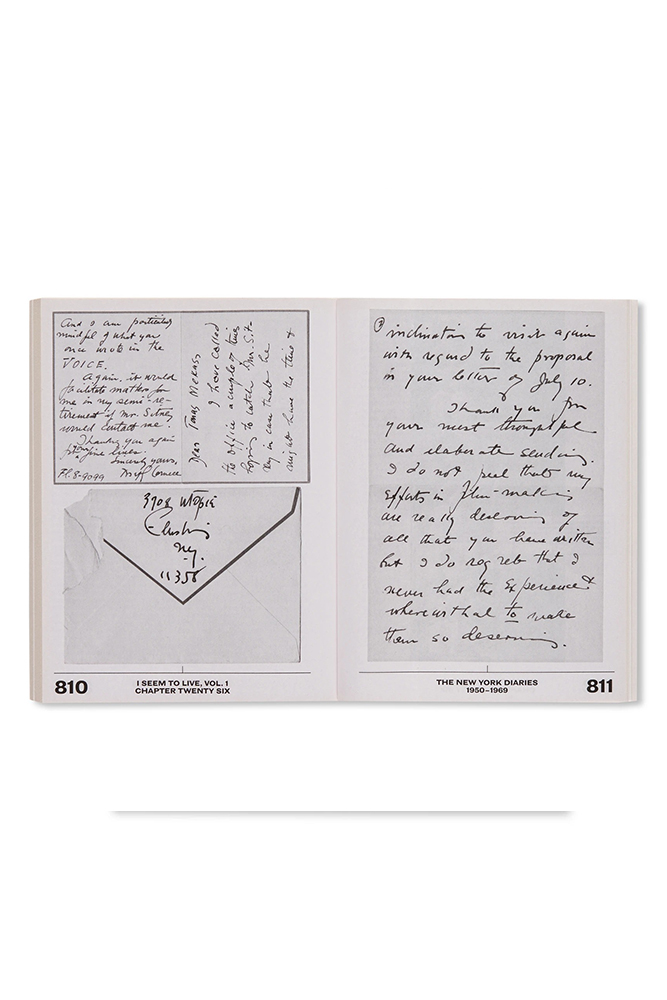 And I am particularly
mindful of what you
once wrote in the
VOICE.
Again, it would
facilitate matters for
me in my semi-re-
tirement if Mr. Sitney
would contact me.
Thanking you again
for your fine lines.
Sincerely yours,
FL 8-9099 Joseph Cornell
Dear Jonas Mekas
I have called
the office a couple of times
hoping to catch Mr. Sit-
ney in case that he
might have the time &
3708 Utopia
Flushing
N.Y.
11358
810
I SEEM TO LIVE, VOL. 1
CHAPTER TWENTY SIX
inclination to visit again
with regard to the proposal
in your letter of July 10.
Thank you for
your most thoughtful
and elaborate sending.
I do not feel that my
efforts in film-making
are really deserving of
all that you have written
but I do regret that I
never had the experience &
wherewithal to make
them so deserving.
THE NEW YORK DIARIES
1950–1969
811